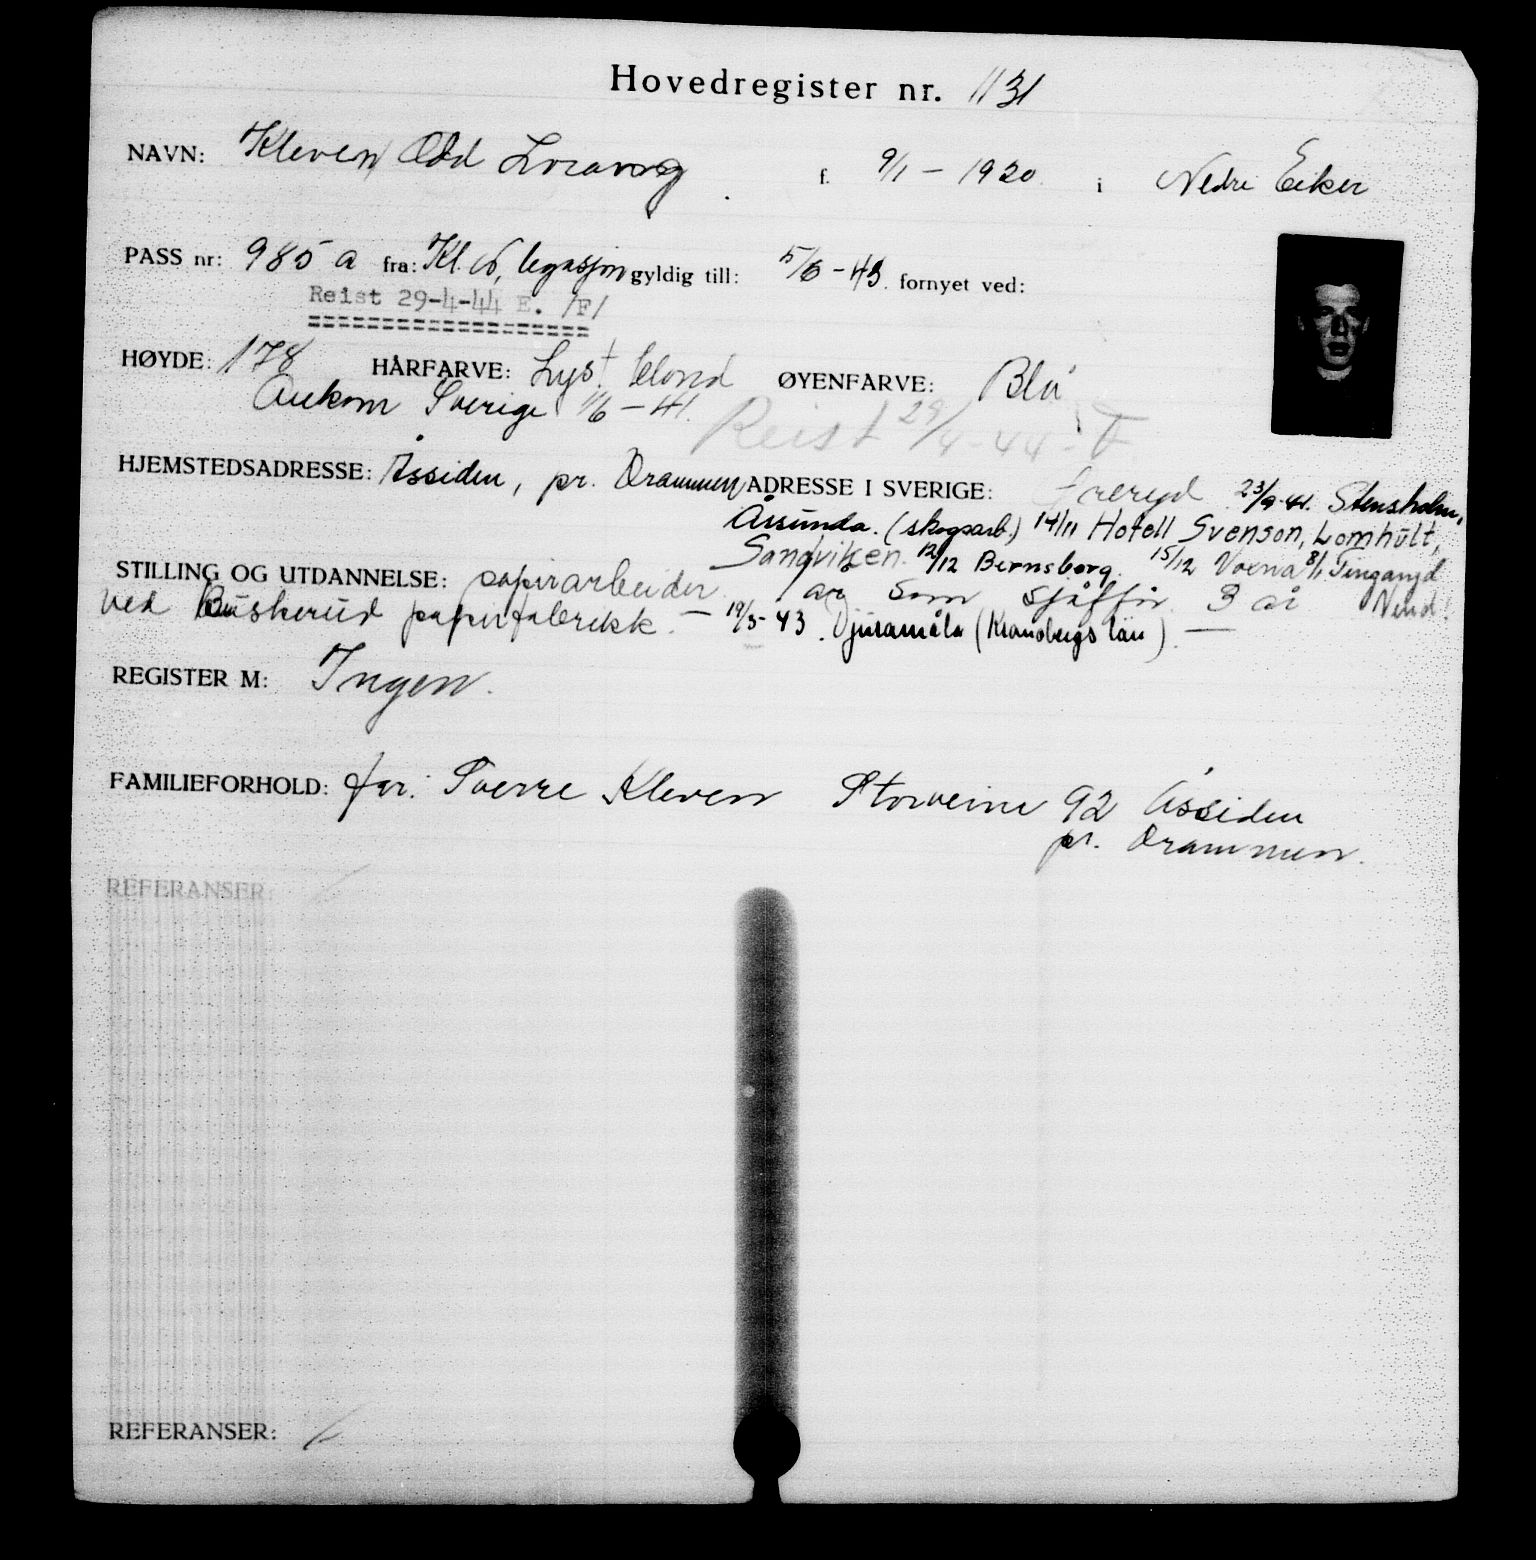 Hovedregister nr. 1131
NAVN: Kleven, Odd f. 9/1 - 1920 i Nedre Eiker
PASS nr: 985 a fra: Kl. legasjon gyldig till: 5/6 - 43. fornyet ved:
Reist 29-4-44 E. /F/
HØYDE: 178 HÅRFARVE: Lyst blond ØYENFARVE: Blå
Ankom Sverige 1/6 - 41.
Reist 29/4-44 - F
HJEMSTEDSADRESSE: Åssiden, pr. Drammen ADRESSE I SVERIGE: 23/9-41. Stensholm,
Årsunda. (skogsarb.) 14/11 Hotell Svenson, Lomhult,
Sandviken. 12/12 Bernsborg. 15/12 Voxna 8/1
STILLING OG UTDANNELSE: papirarbeider. av som sjåffør 3 år
ved Buskerud papirfabrikk. - 19/3-43. Djuramåla (Kronobergs län). -
REGISTER M: Ingen.
FAMILIEFORHOLD: far: Sverre Kleven Storveien 92 Åssiden
pr. Drammen.
REFERANSER:
REFERANSER: